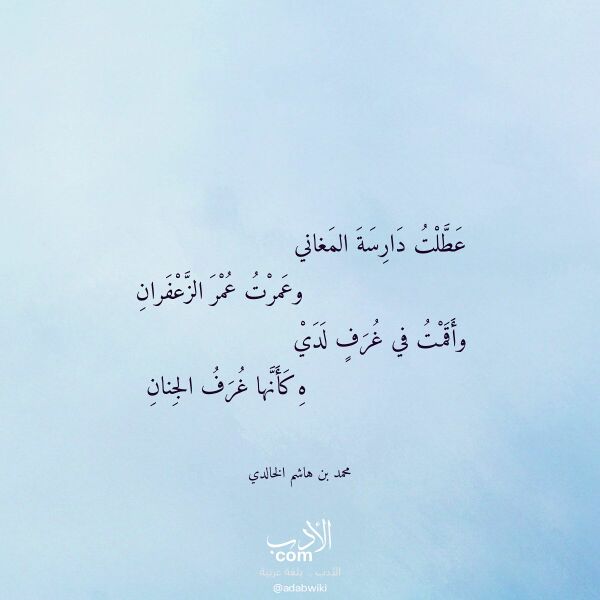 عَطَّلْتُ دَارِسَةَ المَغاني
وعَمرْتُ عُمْرَ الزَّعْفَرانِ
وأَقَمْتُ في غُرَفٍ لَدَيْ
هِ كَأَنَّها غُرَفُ الجِنانِ
محمد بن هاشم الخالدي
الأدب
com
الأدب .. بلغة عربية
@adabwiki